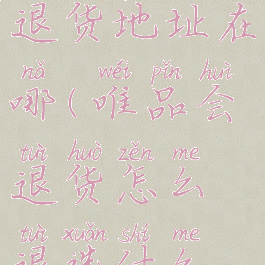 退货地址在
nǎ wéi pǐn huì
哪(唯品会
tuì huò zěn me
退货怎么
tuì xuǎn shí me
退选什么